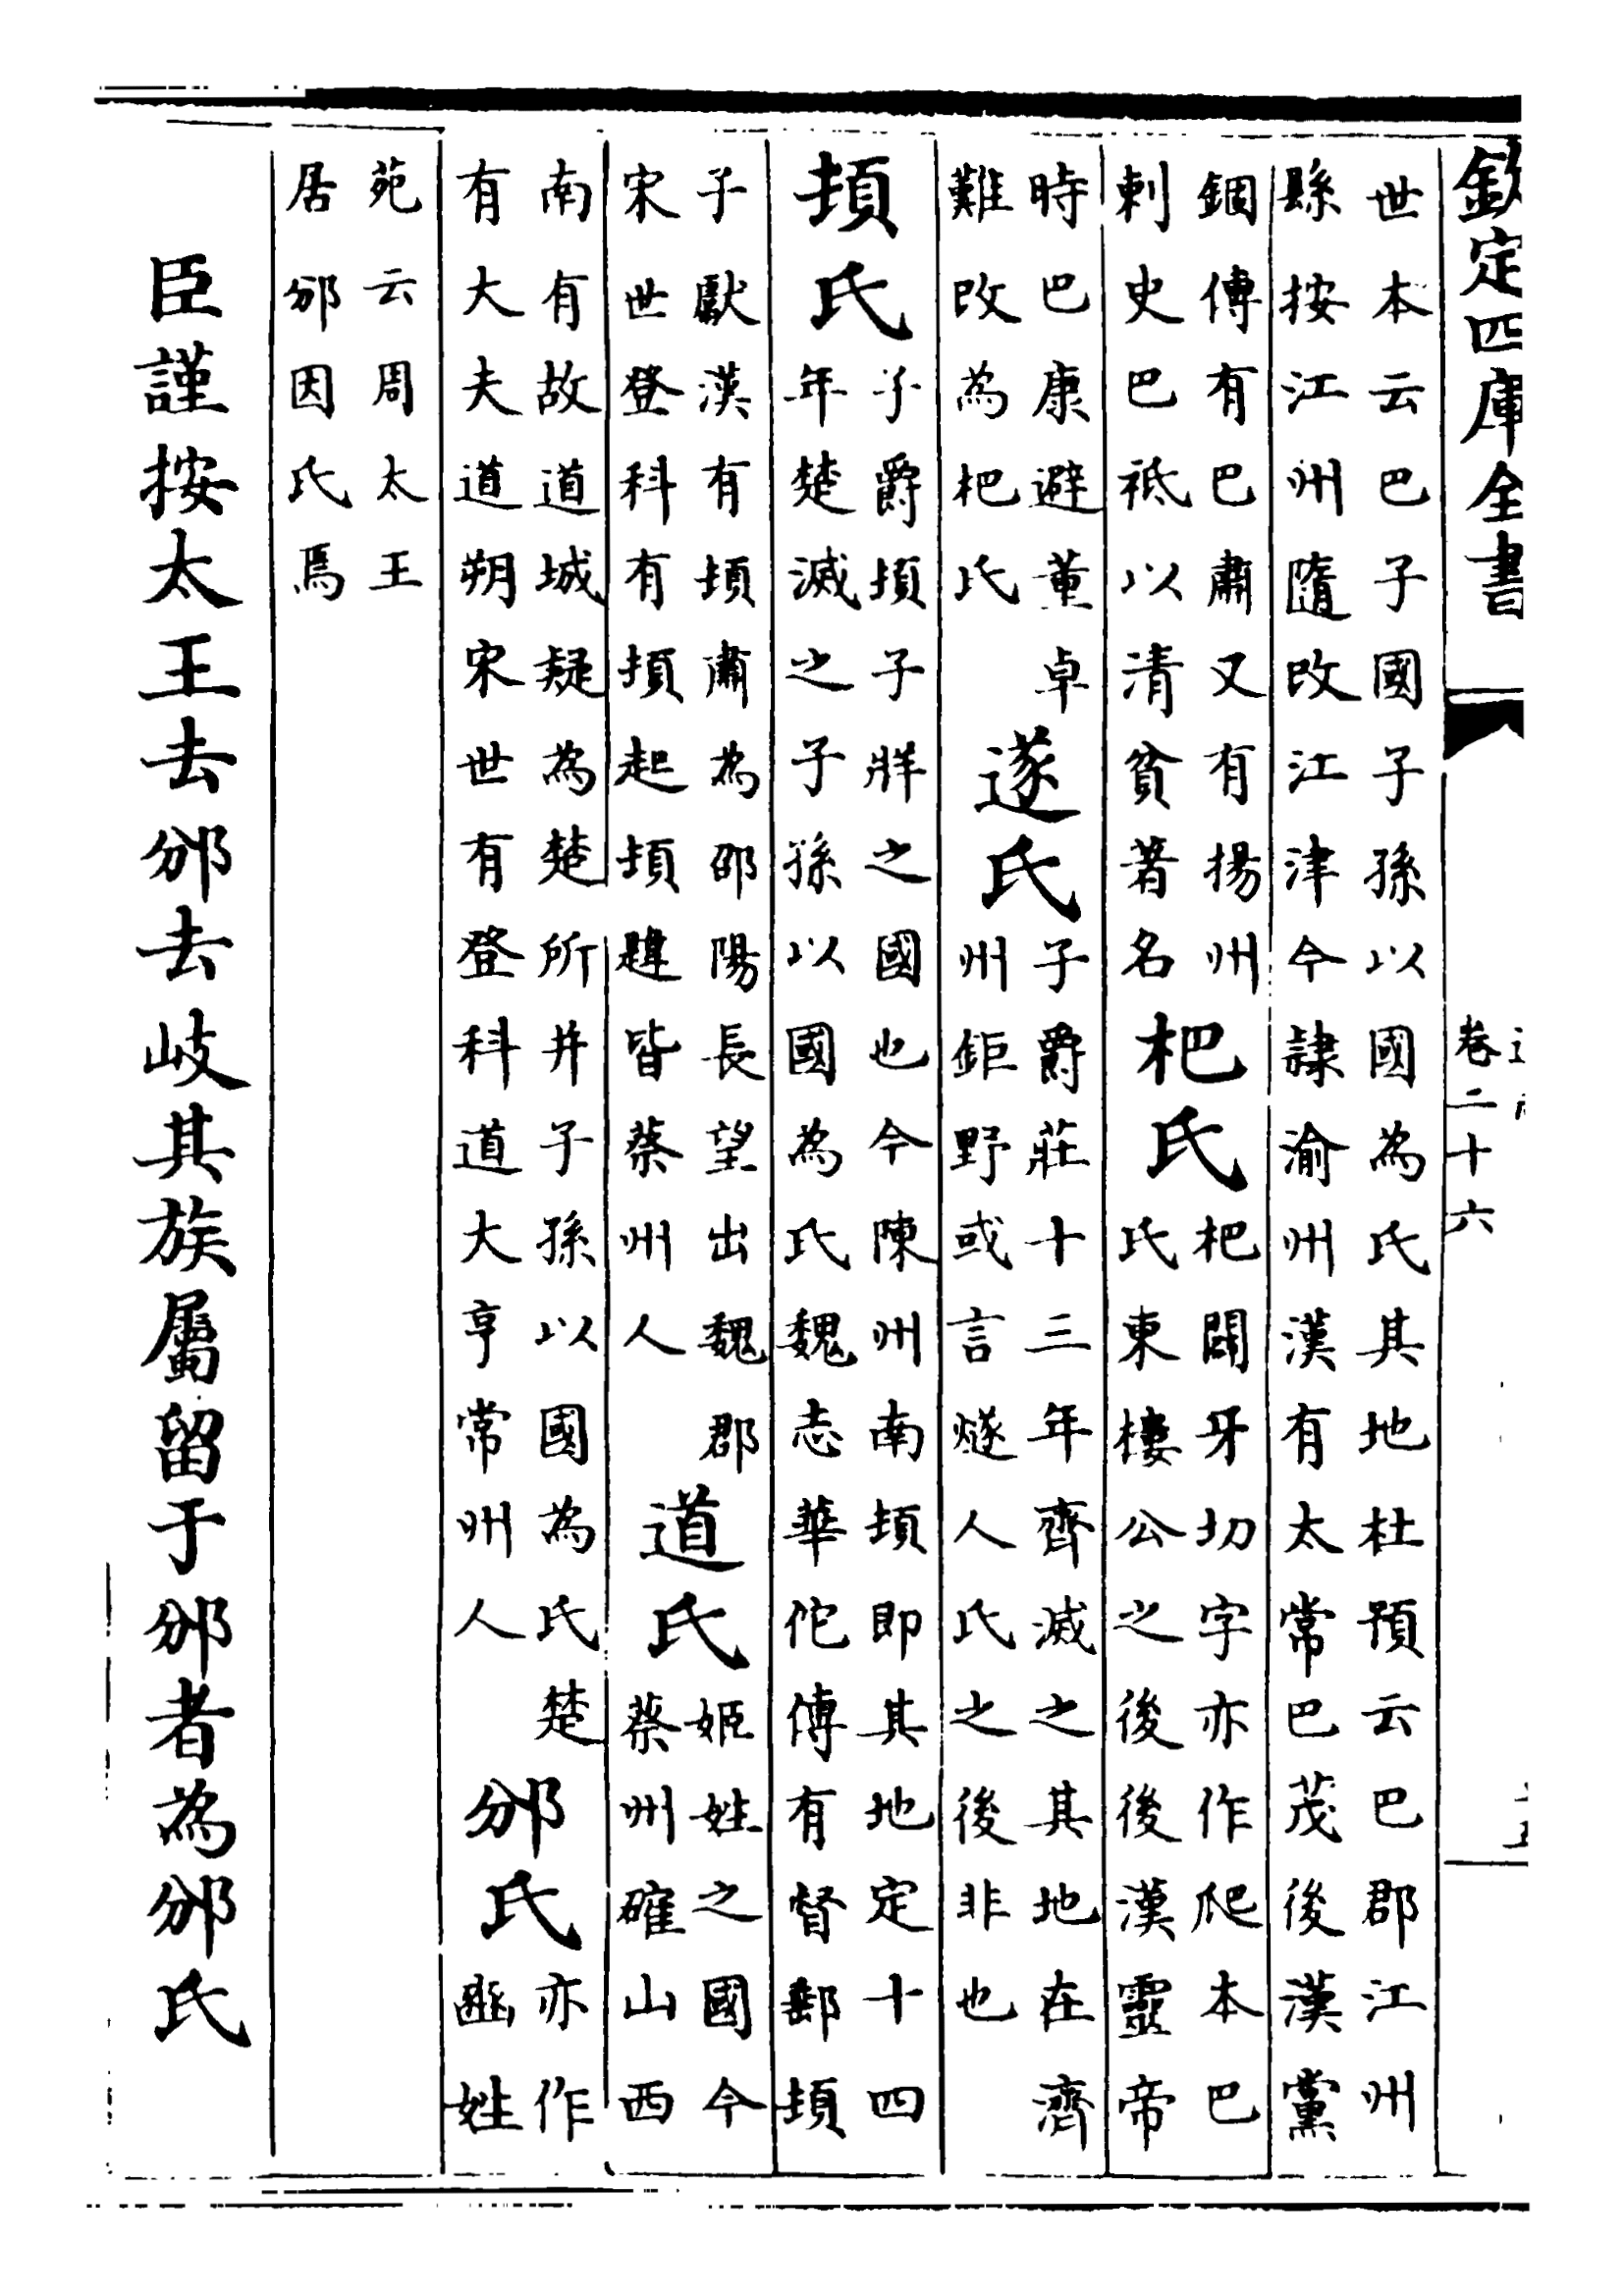 欽定四庫全書
卷二十六
世本云巴子國子孫以國為氏其地杜預云巴郡江州
縣按江州隨改江津今隷渝州漢有太常巴茂後漢黨
錮傳有巴肅又有揚州
刺史巴祗以清貧著名
杷氏
杷闢牙切字亦作爬本巴
氏東樓公之後後漢靈帝
時巴康避董卓
難改為杷氏
遂氏
子爵莊十三年齊滅之其地在濟
州鉅野或言燧人氏之後非也
頊氏
子爵頊子牂之國也今陳州南頊即其地定十四
年楚滅之子孫以國為氏魏志華佗傳有督郵頊
子獻漢有頊肅為邵陽長望出魏郡
宋世登科有頊起頊韙皆蔡州人
道氏
姬姓之國今
蔡州確山西
南有故道城疑為楚所并子孫以國為氏楚
有大夫道朔宋世有登科道大亨常州人
邠氏
亦作
豳姓
苑云周太王
居邠因氏焉
臣謹按太王去邠去岐其族屬留于邠者為邠氏